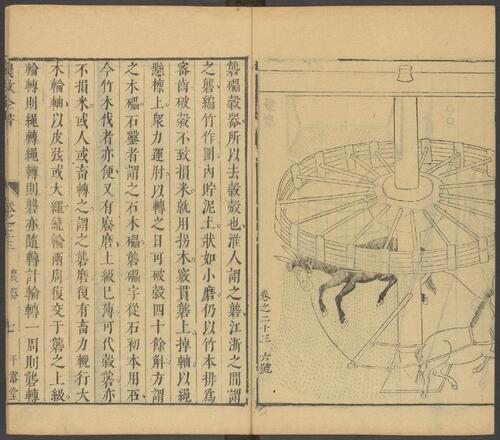 卷之二十三 六
礱礧穀器所以去穀殼也淮人謂之礱江浙之間謂
之礱編竹作圍內貯泥土狀如小磨仍以竹木排爲
密齒破穀不致損米就用拐木竅貫礱上掉軸以繩
懸檁上衆力運肘以轉之日可破穀四十餘斛方謂
之木礧石鑿者謂之石木礧礱礧字從石初本用石
今竹木代者亦便又有廢磨上級已薄可代穀礱亦
不損米或人或畜轉之謂之礱磨復有畜力輓行大
木輪軸以皮弦或大繩繞輪兩周復交于礱之上級
輪轉則繩轉繩轉則礱亦隨轉計輪轉一周則礱轉
農政全書 卷之二十三 農器 七 平露堂